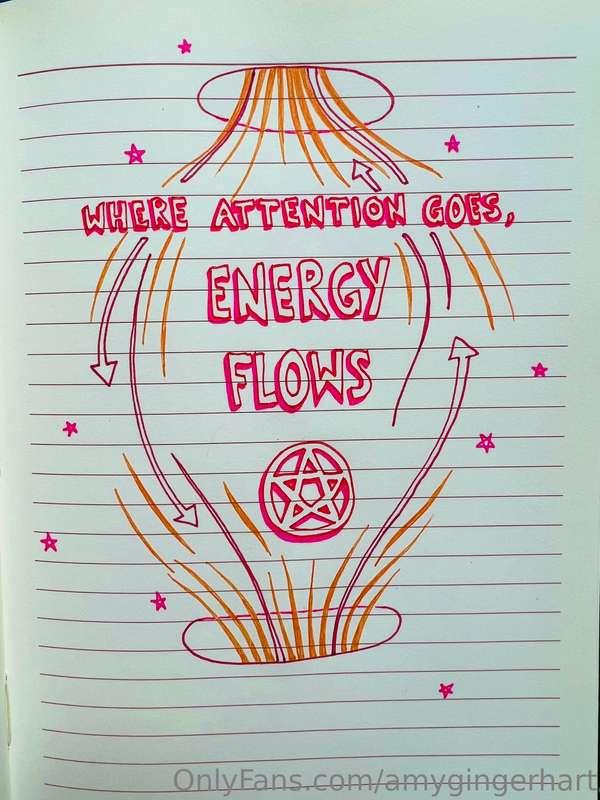 WHERE ATTENTION GOES,
ENERGY
FLOWS
OnlyFans.com/amygingerhart